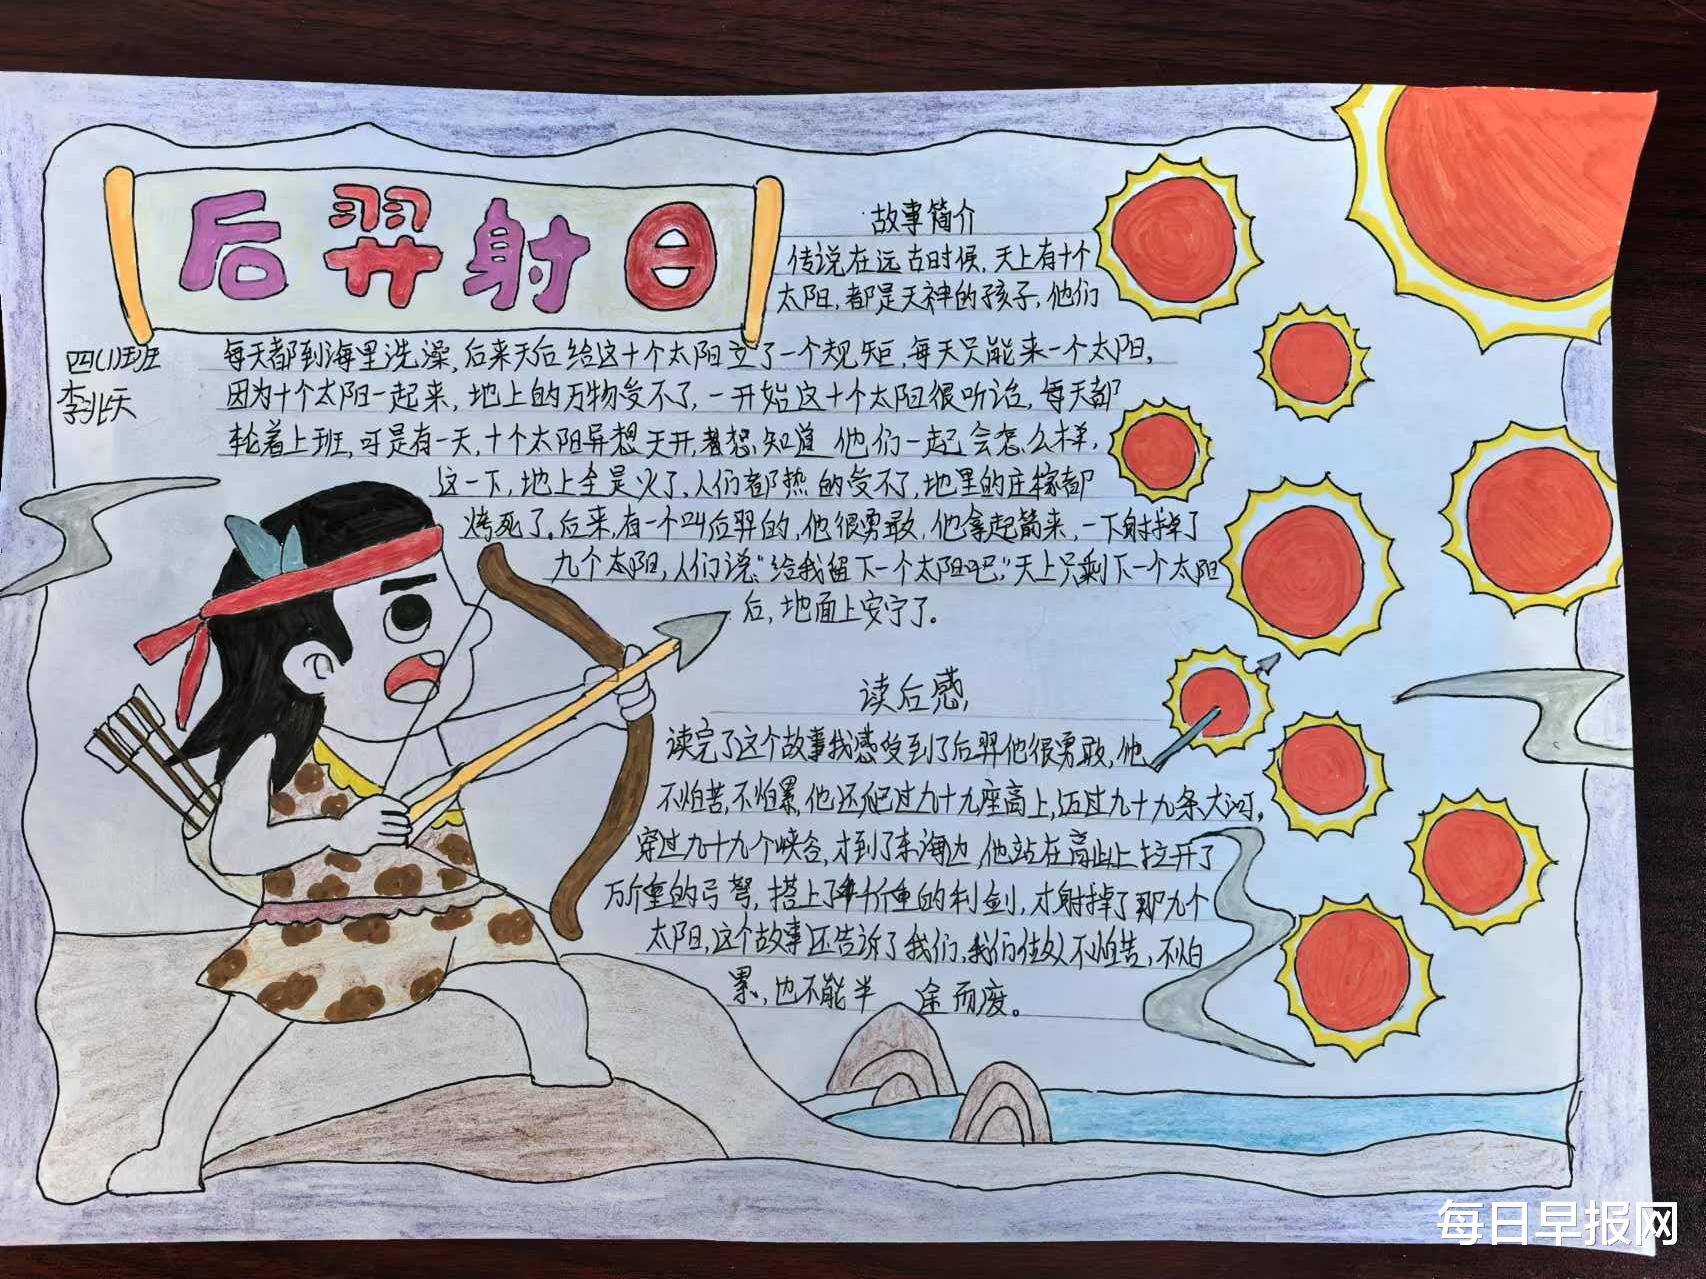 后羿射日
四(1)班
李兆天
故事简介
传说在远古时候,天上有十个
太阳,都是天神的孩子,他们
每天都到海里洗澡,后来天后给这十个太阳立了一个规矩,每天只能来一个太阳,
因为十个太阳一起来,地上的万物受不了,一开始这十个太阳很听话,每天都
轮着上班,可是有一天,十个太阳异想天开,都想知道他们一起会怎么样,
这一下,地上全是火了,人们都热的受不了,地里的庄稼都
烤死了。后来,有一个叫后羿的,他很勇敢,他拿起箭来,一下射掉了
九个太阳,人们说:“给我留下一个太阳吧,”天上只剩下一个太阳
后,地面上安宁了。
读后感
读完了这个故事我感受到了后羿他很勇敢,他
不怕苦,不怕累,他还爬过九十九座高上,迈过九十九条大河,
穿过九十九个峡谷,才到了东海边,他站在高山上拉开了
万斤重的弓弩,搭上了千斤重的利剑,才射掉了那九个
太阳,这个故事还告诉了我们,我们做人不怕苦,不怕
累,也不能半 途而废。
每日早报网